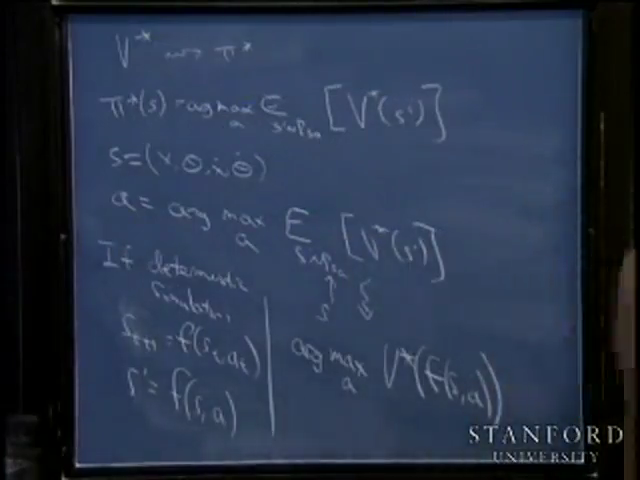 V* ⇝ π*
π*(s) = arg max_a E_{s'~P_sa} [V*(s')]
s = (x, θ, ẋ, θ̇)
a = arg max_a E_{s'~P_sa} [V*(s')]
↑ s
If deterministic
simulator,
s_{t+1} = f(s_t, a_t)
s' = f(s, a)
arg max_a V*(f(s, a))
STANFORD
UNIVERSITY